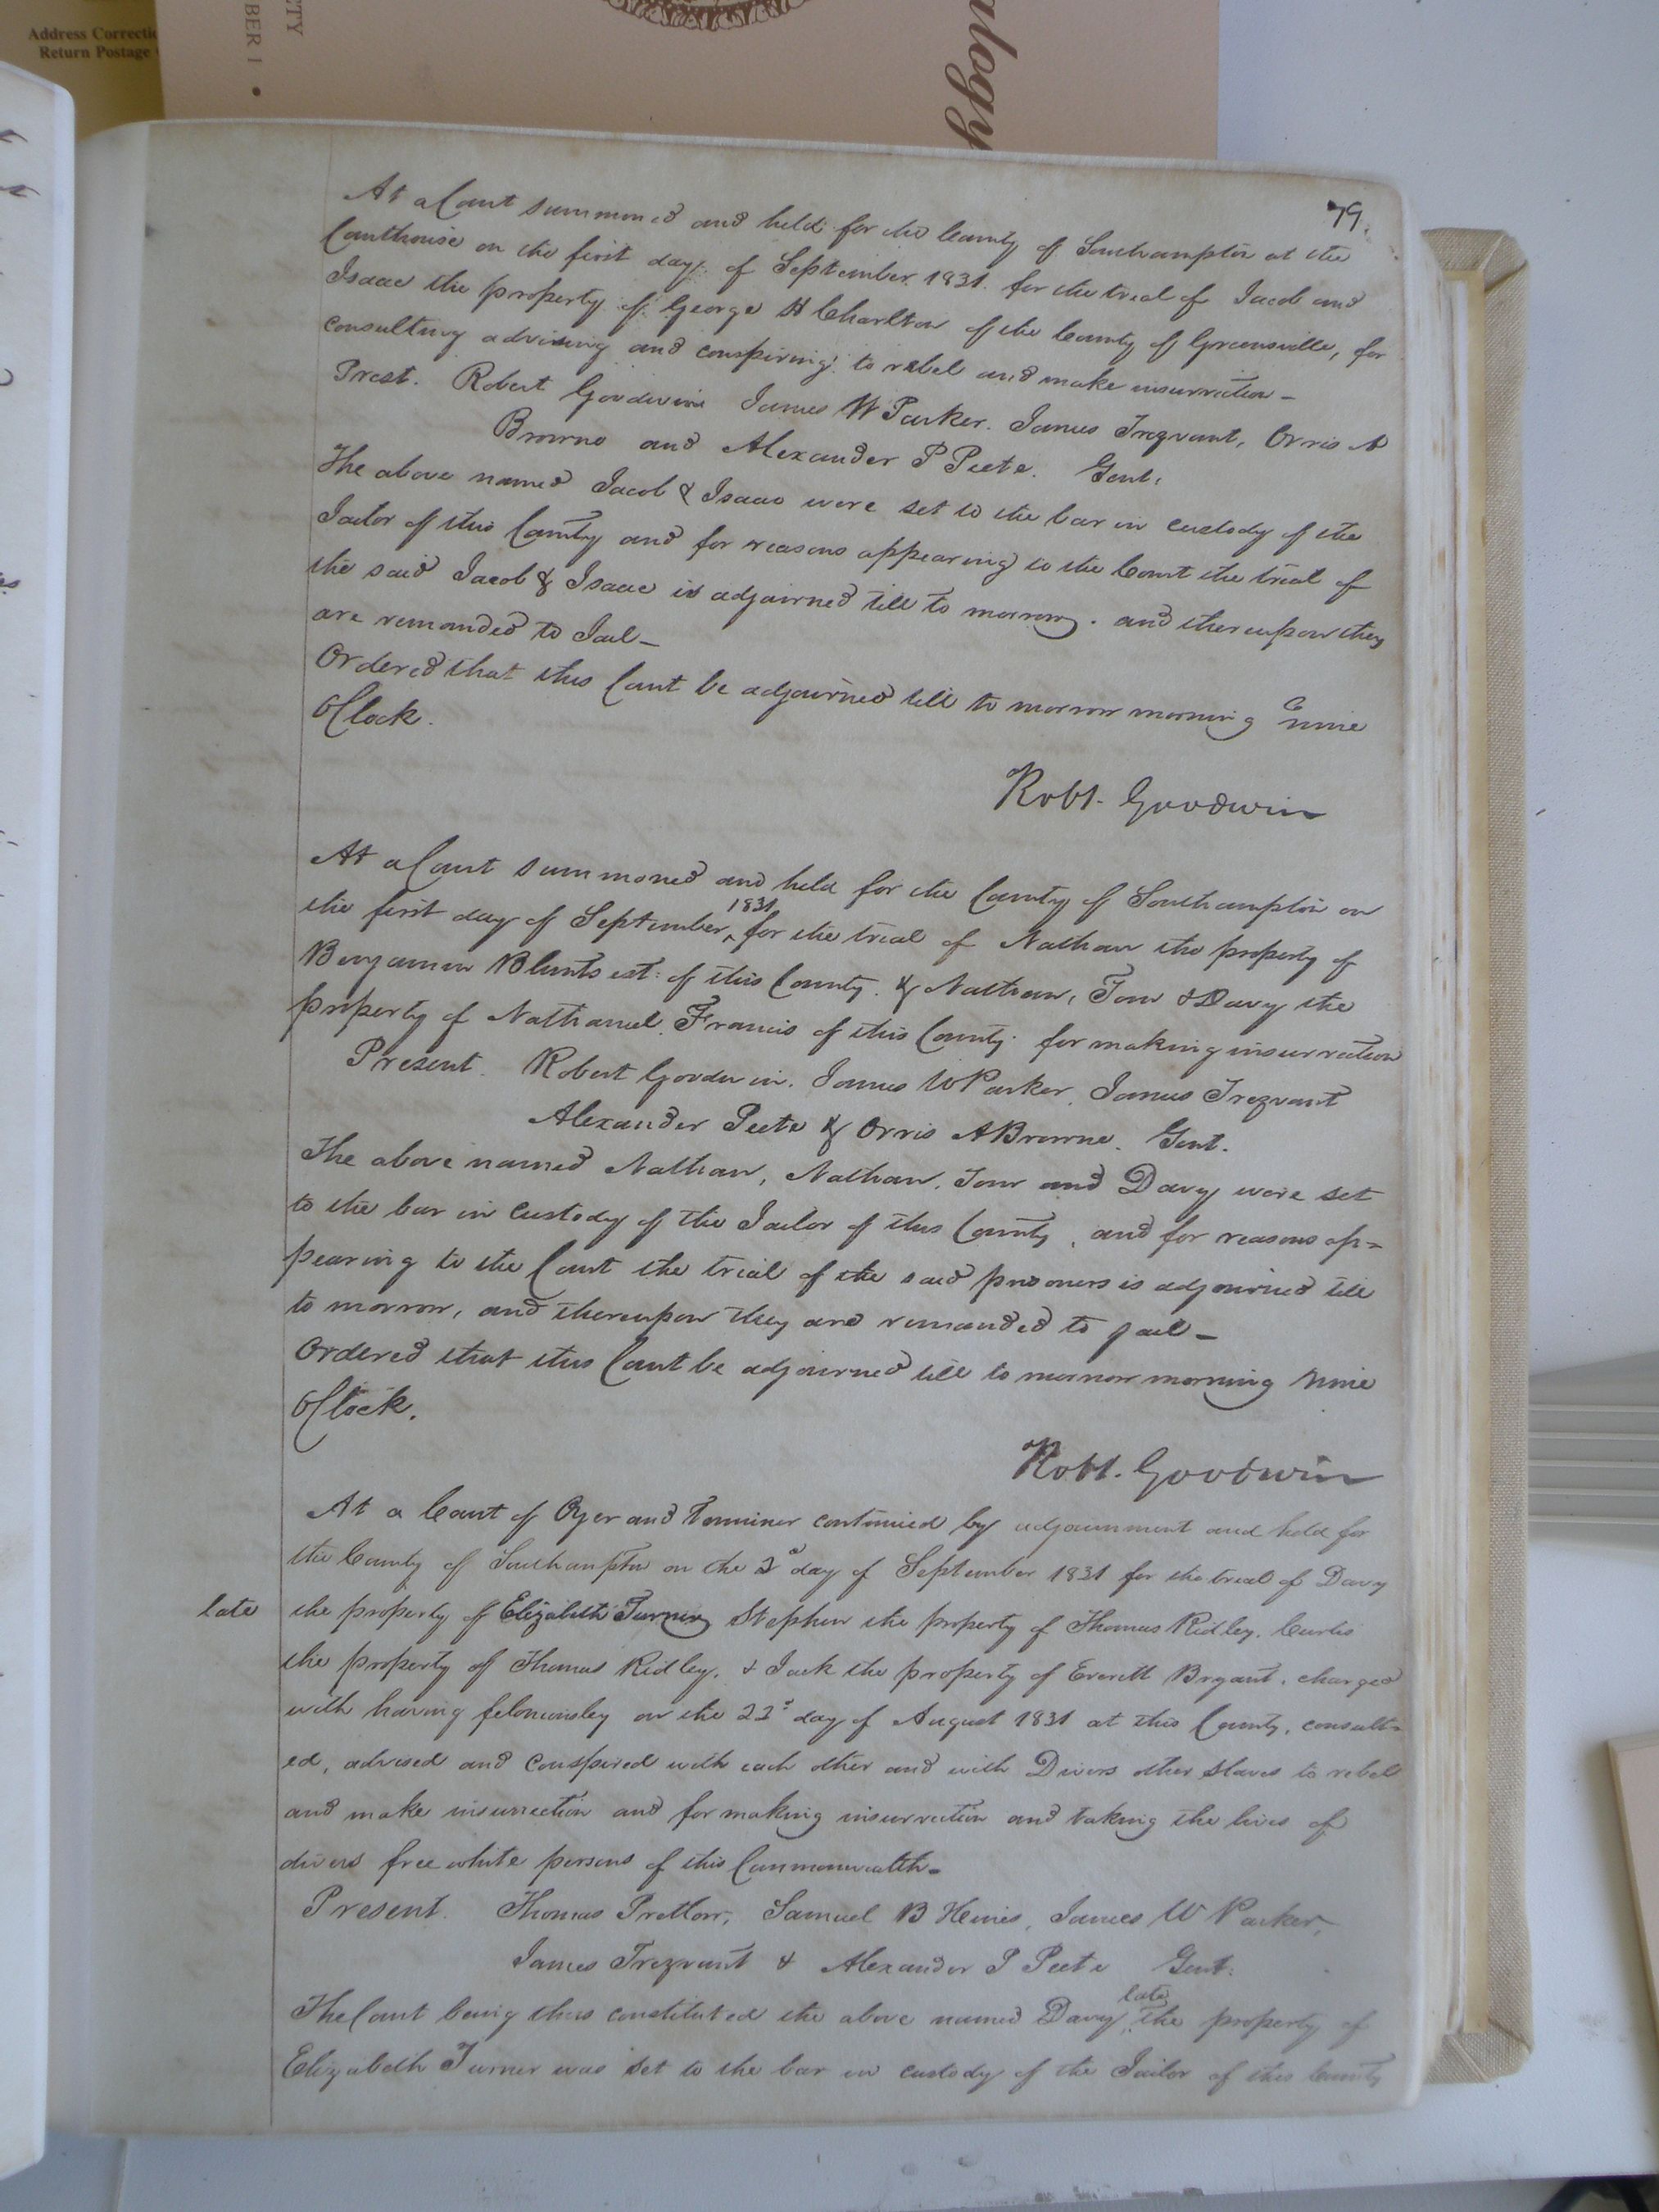 Address Correctio
Return Postage
CTY
BER 1 •
ulogy
79.
At a Court summoned and held for the County of Southampton at the
Courthouse on the first day of September 1831 for the trial of Jacob and
Isaac the property of George H Charlton of the County of Greensville, for
consulting advising and conspiring to rebel and make insurrection –
Prest. Robert Goodwin James W Parker. James Trezvant, Orris A
Browne and Alexander P Peete. Gent.
The above named Jacob & Isaac were set to the bar in custody of the
Jailor of this County and for reasons appearing to the Court the trial of
the said Jacob & Isaac is adjourned till to morrow. and thereupon they
are remanded to Jail –
Ordered that this Court be adjourned till to morrow morning nine
OClock.
Robt. Goodwin
At a Court summoned and held for the County of Southampton on
the first day of September ^1831 for the trial of Nathan the property of
Benjamin Blunts est: of this County. & Nathan, Tom & Davy the
property of Nathaniel Francis of this County for making insurrection
Present. Robert Goodwin. James W Parker, James Trezvant
Alexander Peete & Orris A Browne. Gent.
The above named Nathan, Nathan, Tom and Davy were set
to the bar in custody of the Jailor of this County, and for reasons ap=
pearing to the Court the trial of the said prisoners is adjourned till
to morrow, and thereupon they are remanded to jail –
Ordered that this Court be adjourned till to morrow morning nine
OClock.
Robt. Goodwin
At a Court of Oyer and Terminer continued by adjournment and held for
the County of Southampton on the 2d day of September 1831 for the trial of Davy
late the property of Elizabeth Turner, Stephen the property of Thomas Ridley. Curtis
the property of Thomas Ridley, & Jack the property of Everitt Bryant. charged
with having feloniously on the 22d day of August 1831 at this County, consult=
ed, advised and conspired with each other and with Divers other slaves to rebel
and make insurrection and for making insurrection and taking the lives of
divers free white persons of this Commonwealth –
Present. Thomas Pretlow, Samuel B Hines, James W Parker,
James Trezvant & Alexander P Peete Gent.
The Court being thus constituted the above named Davy late the property of
Elizabeth Turner was set to the bar in custody of the Jailor of this County